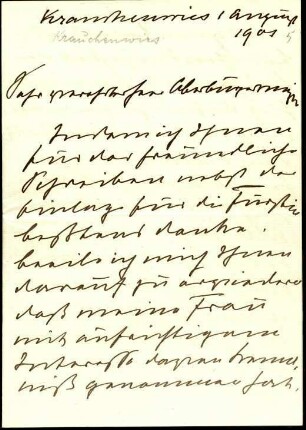 Krauchenwies 1 August
Krauchenwies
1901 5
Sehr verehrter Herr Oberbürgermeister
Indem ich Ihnen
für das freundliche
Schreiben nebst der
Einlage für die Fürstin
bestens danke,
beeile ich mich Ihnen
darauf zu erwiedern
daß meine Frau
mit aufrichtigem
Interesse davon Kennt-
niß genommen hat.